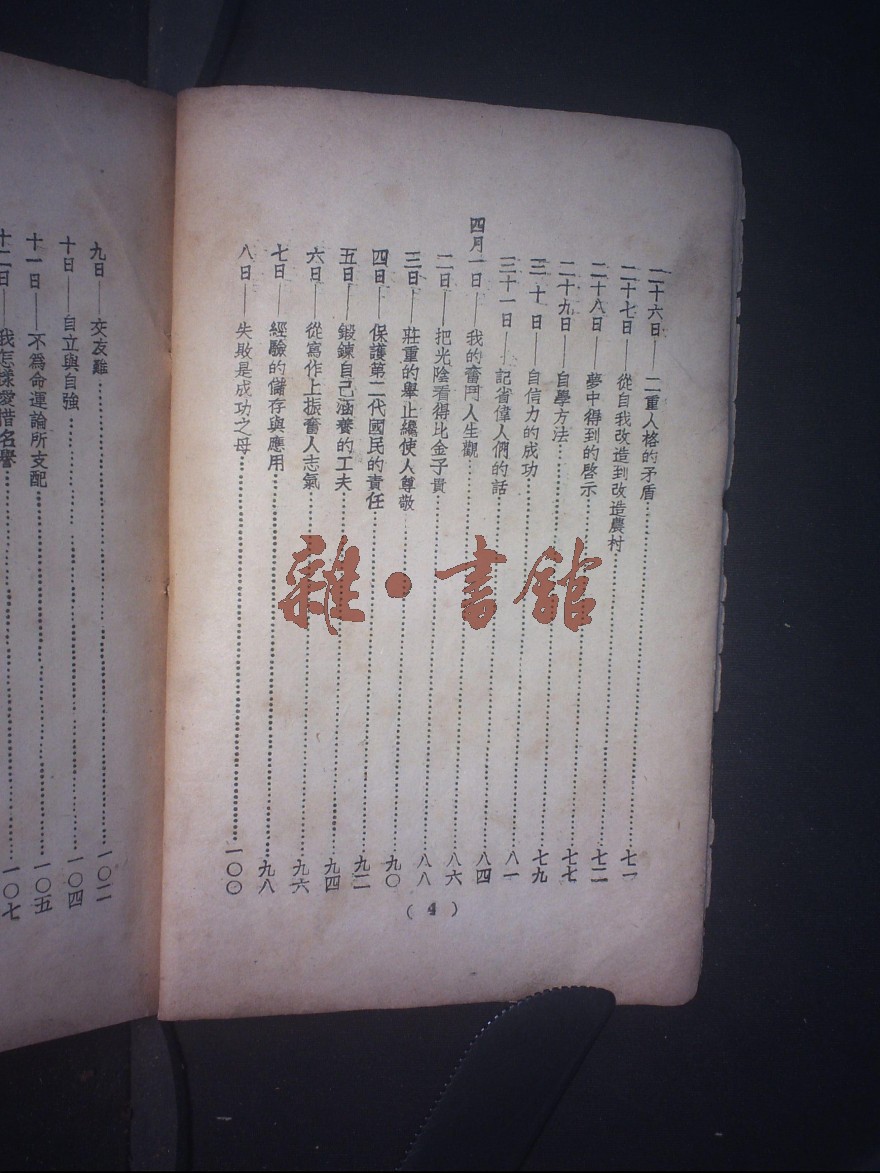 二十六日——二重人格的矛盾……七一
二十七日——從自我改造到改造農村……七二
二十八日——夢中得到的啓示……七七
二十九日——自學方法……七九
三十日——自信力的成功……八一
三十一日——記省偉人們的話……八四
四月一日——我的奮鬥人生觀……八六
二日——把光陰看得比金子貴……八八
三日——莊重的舉止纔使人尊敬……九〇
四日——保護第二代國民的責任……九二
五日——鍛鍊自己涵養的工夫……九四
六日——從寫作上振奮人志氣……九六
七日——經驗的儲存與應用……九八
八日——失敗是成功之母……一〇〇
(4)
九日——交友難……一〇二
十日——自立與自強……一〇四
十一日——不為命運論所支配……一〇五
十二日——我怎樣愛惜名譽……一〇七
雜·書館